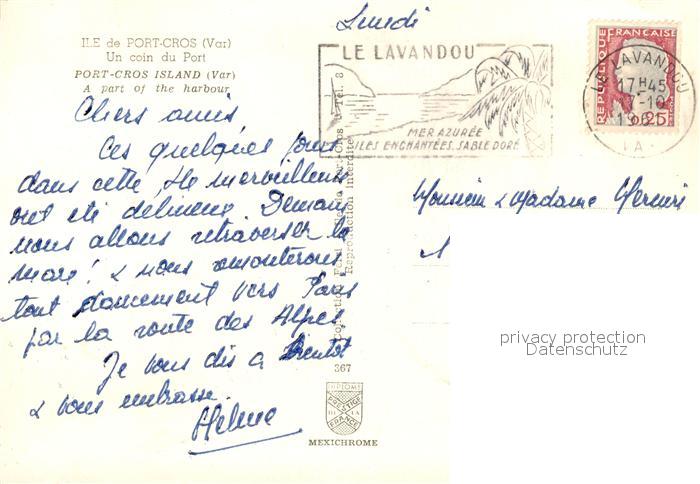 Lundi
ILE de PORT-CROS (Var)
Un coin du Port
PORT-CROS ISLAND (Var)
A part of the harbour
Chers amis
Ces quelques jours
dans cette Ile merveilleuse
ont été délicieux. Demain
nous allons retraverser la
mare! & nous remonterons
tout doucement vers Paris
par la route des Alpes
Je vous dis à Bientôt
& vous embrasse.
Hélène
LE LAVANDOU
MER AZURÉE
ILES ENCHANTÉES, SABLE DORÉ
REPUBLIQUE FRANÇAISE
0,25
LE LAVANDOU
17H45
-10
196
Monsieur & Madame
Reproduction Interdite
367
DIPLOME
PRESTIGE
DE LA
FRANCE
MEXICHROME
privacy protection
Datenschutz